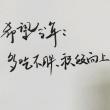 希望今年：
多吃不胖，积极向上